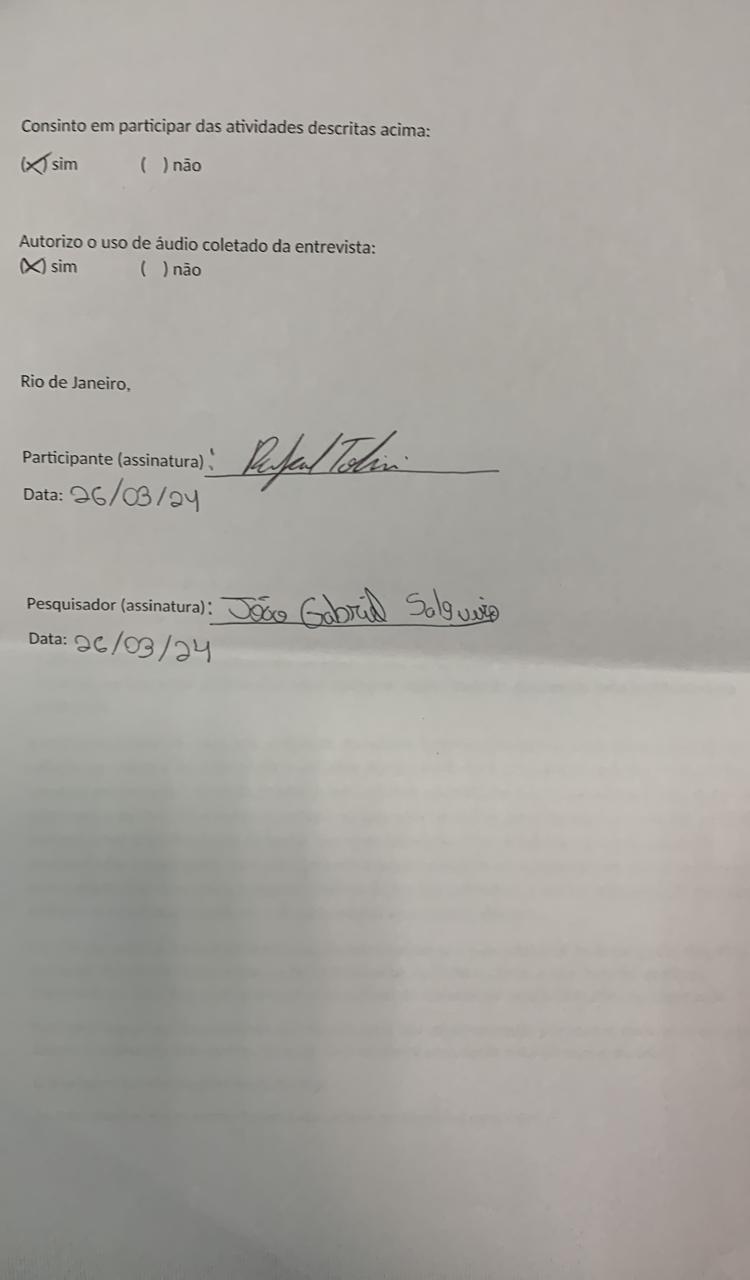 Consinto em participar das atividades descritas acima:
(X) sim ( ) não
Autorizo o uso de áudio coletado da entrevista:
(X) sim ( ) não
Rio de Janeiro,
Participante (assinatura) : Rafael
Data: 26/03/24
Pesquisador (assinatura): João Gabriel Salgueiro
Data: 26/03/24